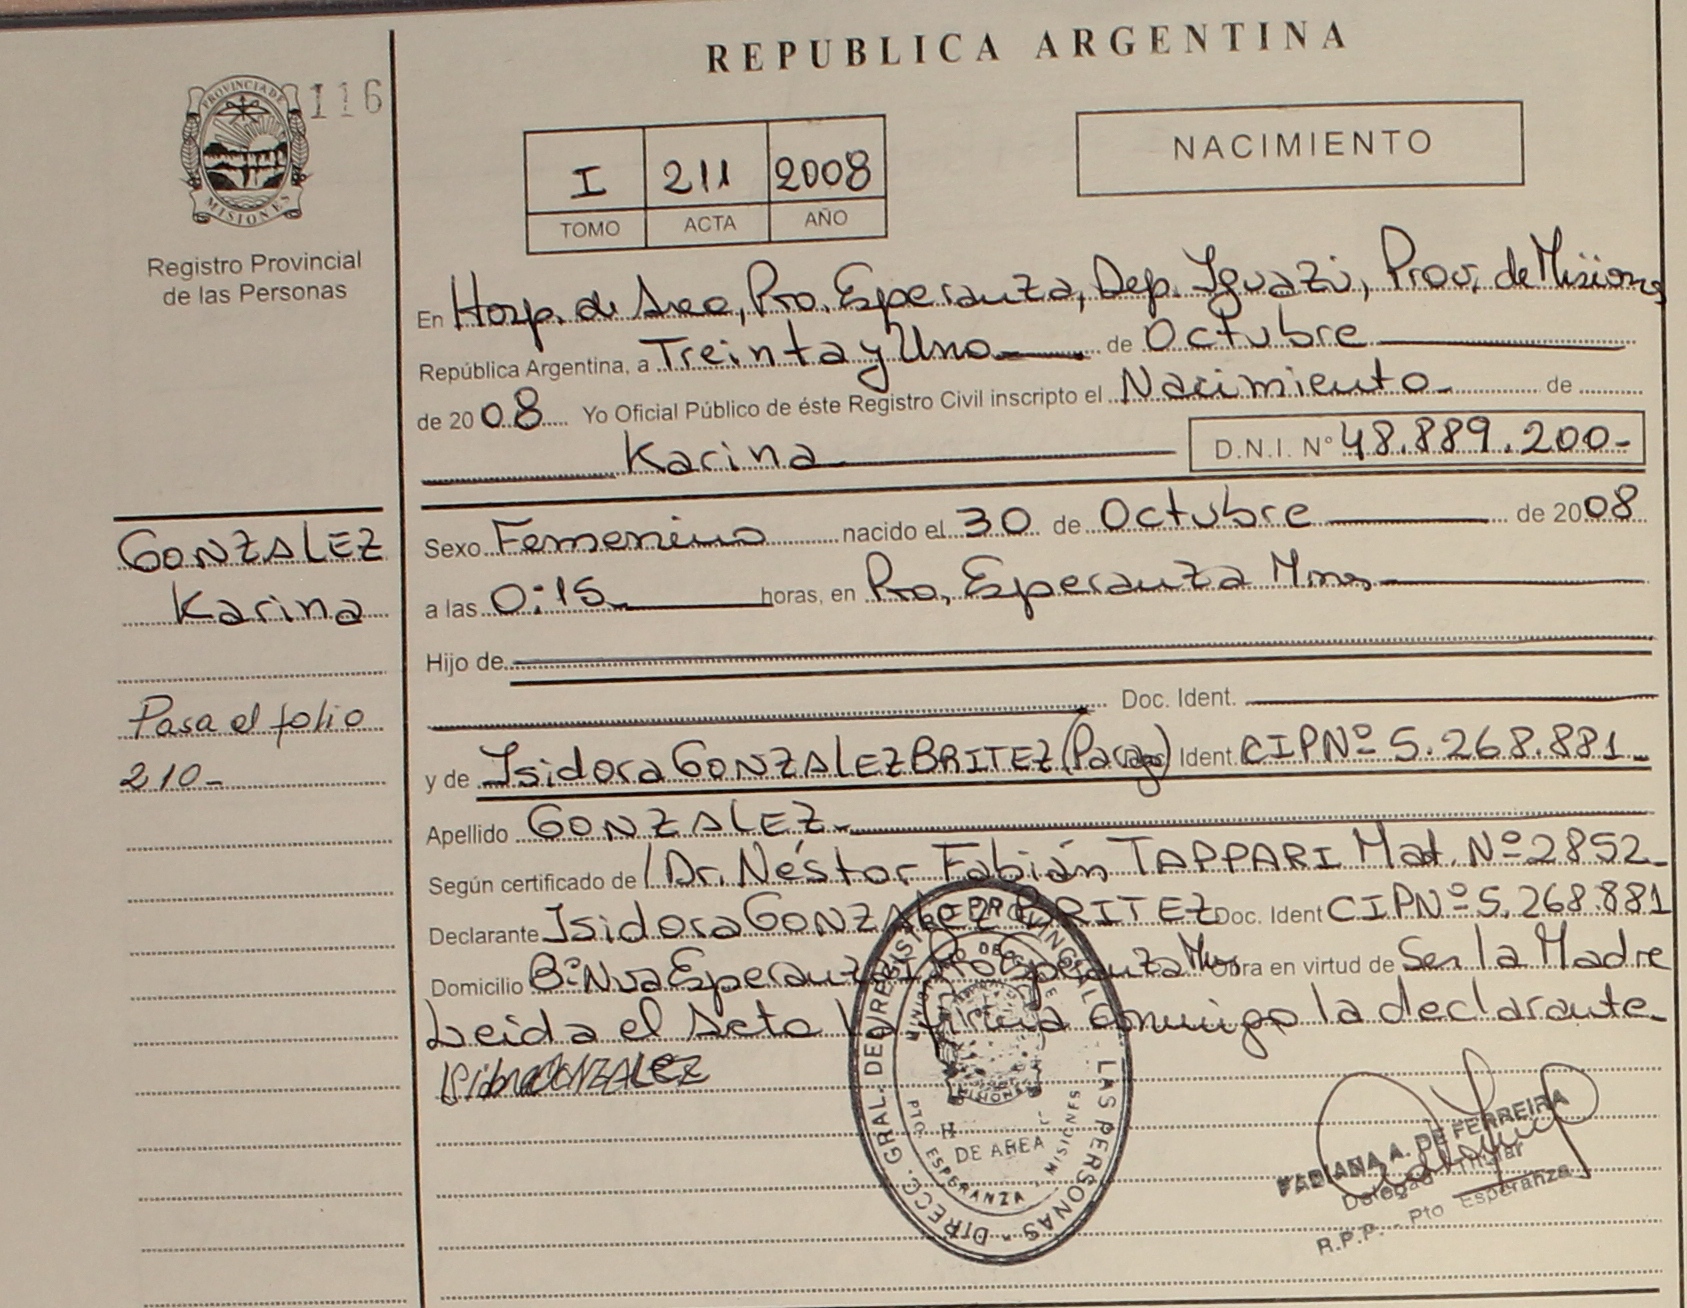 REPUBLICA ARGENTINA
PROVINCIA DE
MISIONES
116
Registro Provincial
de las Personas
I 211 2008
TOMO ACTA AÑO
NACIMIENTO
En Hosp. de Area, Pto. Esperanza, Dep. Iguazú, Prov. de Misiones
República Argentina, a Treinta y Uno de Octubre
de 2008 Yo Oficial Público de éste Registro Civil inscripto el Nacimiento de
Karina D.N.I. N° 48.889.200-
GONZALEZ
Karina
Pasa el folio
210-
Sexo Femenino nacido el 30 de Octubre de 2008
a las 0:15 horas, en Pto, Esperanza Mnes
Hijo de
Doc. Ident.
y de Isidora GONZALEZ BRITEZ (Parag) Ident CIPNº 5.268.881
Apellido GONZALEZ
Según certificado de Dr. Néstor Fabián TAPPARI Mat. Nº 2852
Declarante Isidora GONZALEZ BRITEZ Doc. Ident CIPNº 5.268.881
Domicilio Bº Nva Esperanza Pto Esperanza Mnes Obra en virtud de Ser la Madre
Leida el Acta la firma conmigo la declarante
Isidora GONZALEZ
DIRECC. GRAL. DEL REGISTRO PROVINCIAL DE LAS PERSONAS
DE AREA
PTO. ESPERANZA - MISIONES
FABIANA A. DE FERREIRA
Delegada Titular
R.P.P. - Pto Esperanza